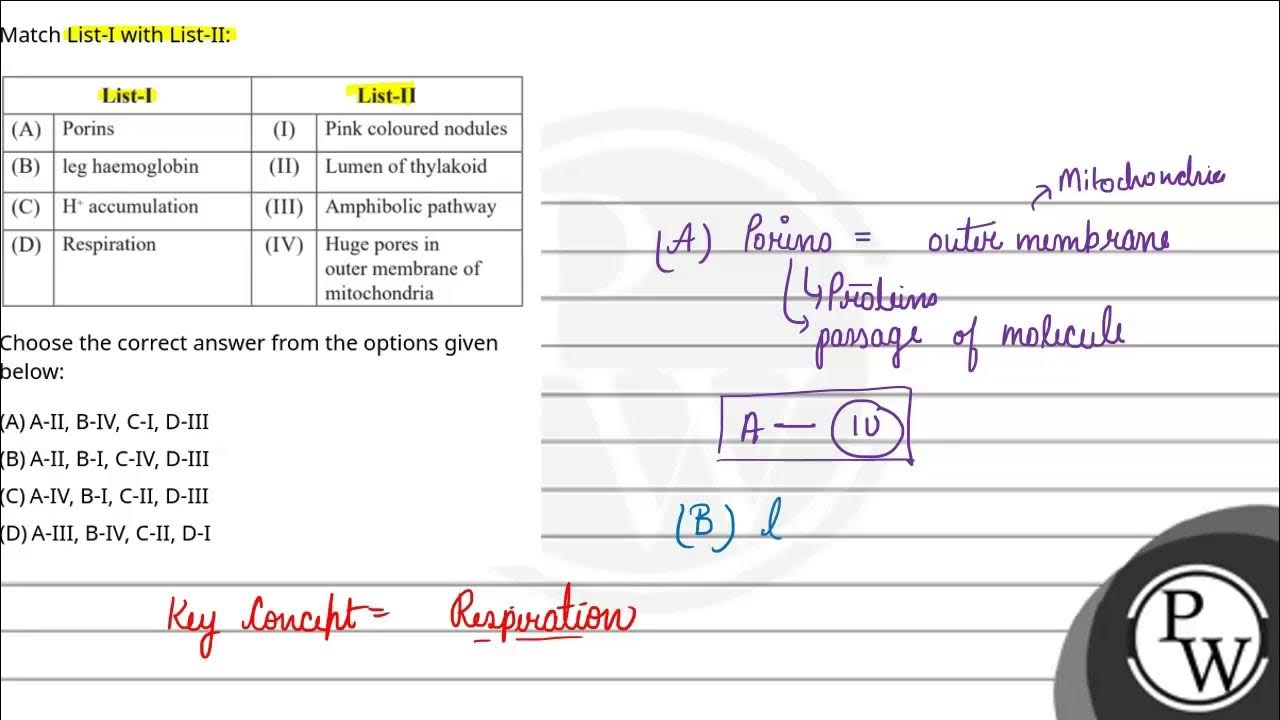 Match List-I with List-II:
List-I List-II
(A) Porins (I) Pink coloured nodules
(B) leg haemoglobin (II) Lumen of thylakoid
(C) H⁺ accumulation (III) Amphibolic pathway
(D) Respiration (IV) Huge pores in
outer membrane of
mitochondria
Choose the correct answer from the options given
below:
(A) A-II, B-IV, C-I, D-III
(B) A-II, B-I, C-IV, D-III
(C) A-IV, B-I, C-II, D-III
(D) A-III, B-IV, C-II, D-I
Key Concept = Respiration
Mitochondria
(A) Porins = outer membrane
Proteins
passage of molecule
A — IV
(B) l
PW